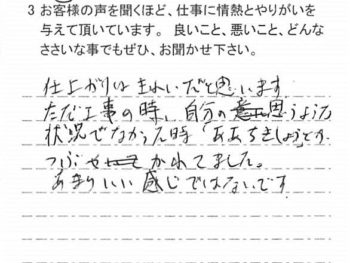 3 お客様の声を聞くほど、仕事に情熱とやりがいを
与えて頂いています。良いこと、悪いこと、どんな
ささいな事でもぜひ、お聞かせ下さい。
仕上がりは きれいだと思います。
ただ工事の時、自分の思うような
状況でなかった時「ああちきしょうとか
つぶやかれてました。
あまりいい感じではないです